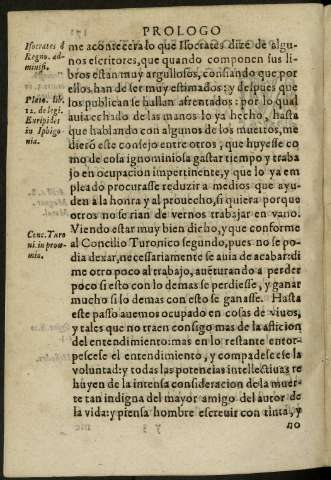 PROLOGO
Isocrates d
Regno. ad-
minist.
me acontecera lo que Isocrates dize de algu-
nos escritores, que quando componen sus li-
bros estan muy argullosos, confiando que por
ellos han de ser muy estimados: y despues que
Plato. lib.
12. de legi.
Euripides
in Iphigo-
nia.
los publican se hallan afrentados: por lo qual
auia echado de las manos lo ya hecho, hasta
que hablando con algunos de los muertos, me
dierō este consejo entre otros, que huyesse co
mo de cosa ignominiosa gastar tiempo y traba
jo en ocupacion impertinente, y que lo ya em
pleado procurasse reduzir a medios que ayu-
den a la honra y al prouecho, si quiera porque
otros no se rian de vernos trabajar en vano.
Conc. Turo
ni. in proœ-
mio.
Viendo estar muy bien dicho, y que conforme
al Concilio Turonico segundo, pues no se po-
dia dexar, necessariamente se auia de acabar: di
me otro poco al trabajo, auēturando a perder
poco si esto con lo demas se perdiesse, y ganar
mucho si lo demas con esto se ganasse. Hasta
este passo auemos ocupado en cosas de viuos,
y tales que no traen consigo mas de la aficion
del entendimiento: mas en lo restante entor-
pescese el entendimiento, y compadescese la
voluntad: y todas las potencias intellectiuas re
huyen de la intensa consideracion de la muer-
te tan indigna del mayor amigo del autor de
la vida: y piensa hombre escreuir con tinta, y
no